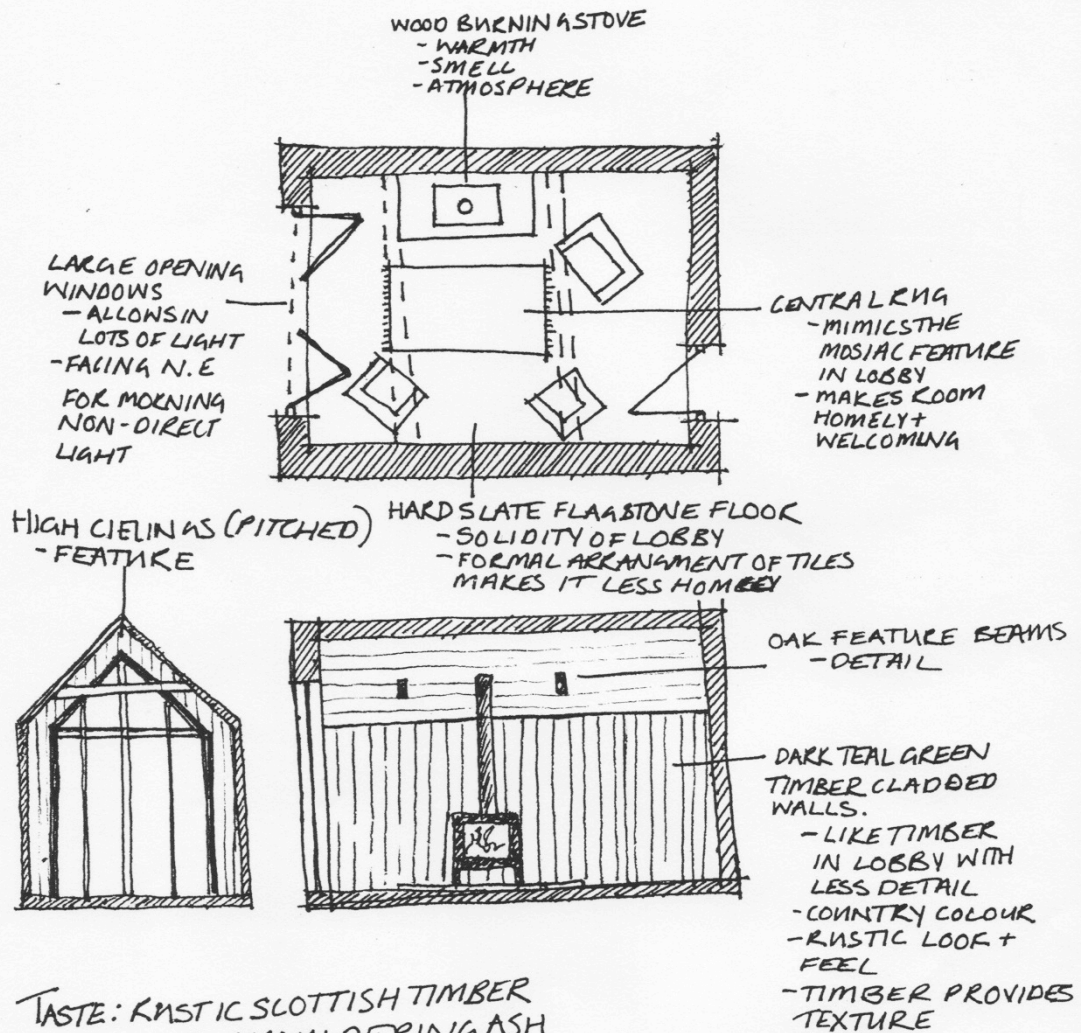 WOOD BURNING STOVE
- WARMTH
- SMELL
- ATMOSPHERE
LARGE OPENING
WINDOWS
- ALLOWS IN
LOTS OF LIGHT
- FACING N.E
FOR MORNING
NON-DIRECT
LIGHT
CENTRAL RUG
- MIMICS THE
MOSIAC FEATURE
IN LOBBY
- MAKES ROOM
HOMELY +
WELCOMING
HIGH CIELINGS (PITCHED)
- FEATURE
HARD SLATE FLAGSTONE FLOOR
- SOLIDITY OF LOBBY
- FORMAL ARRANGMENT OF TILES
MAKES IT LESS HOMLEY
OAK FEATURE BEAMS
- DETAIL
DARK TEAL GREEN
TIMBER CLADDED
WALLS.
- LIKE TIMBER
IN LOBBY WITH
LESS DETAIL
- COUNTRY COLOUR
- RUSTIC LOOK +
FEEL
- TIMBER PROVIDES
TEXTURE
TASTE: RUSTIC SCOTTISH TIMBER
ASH